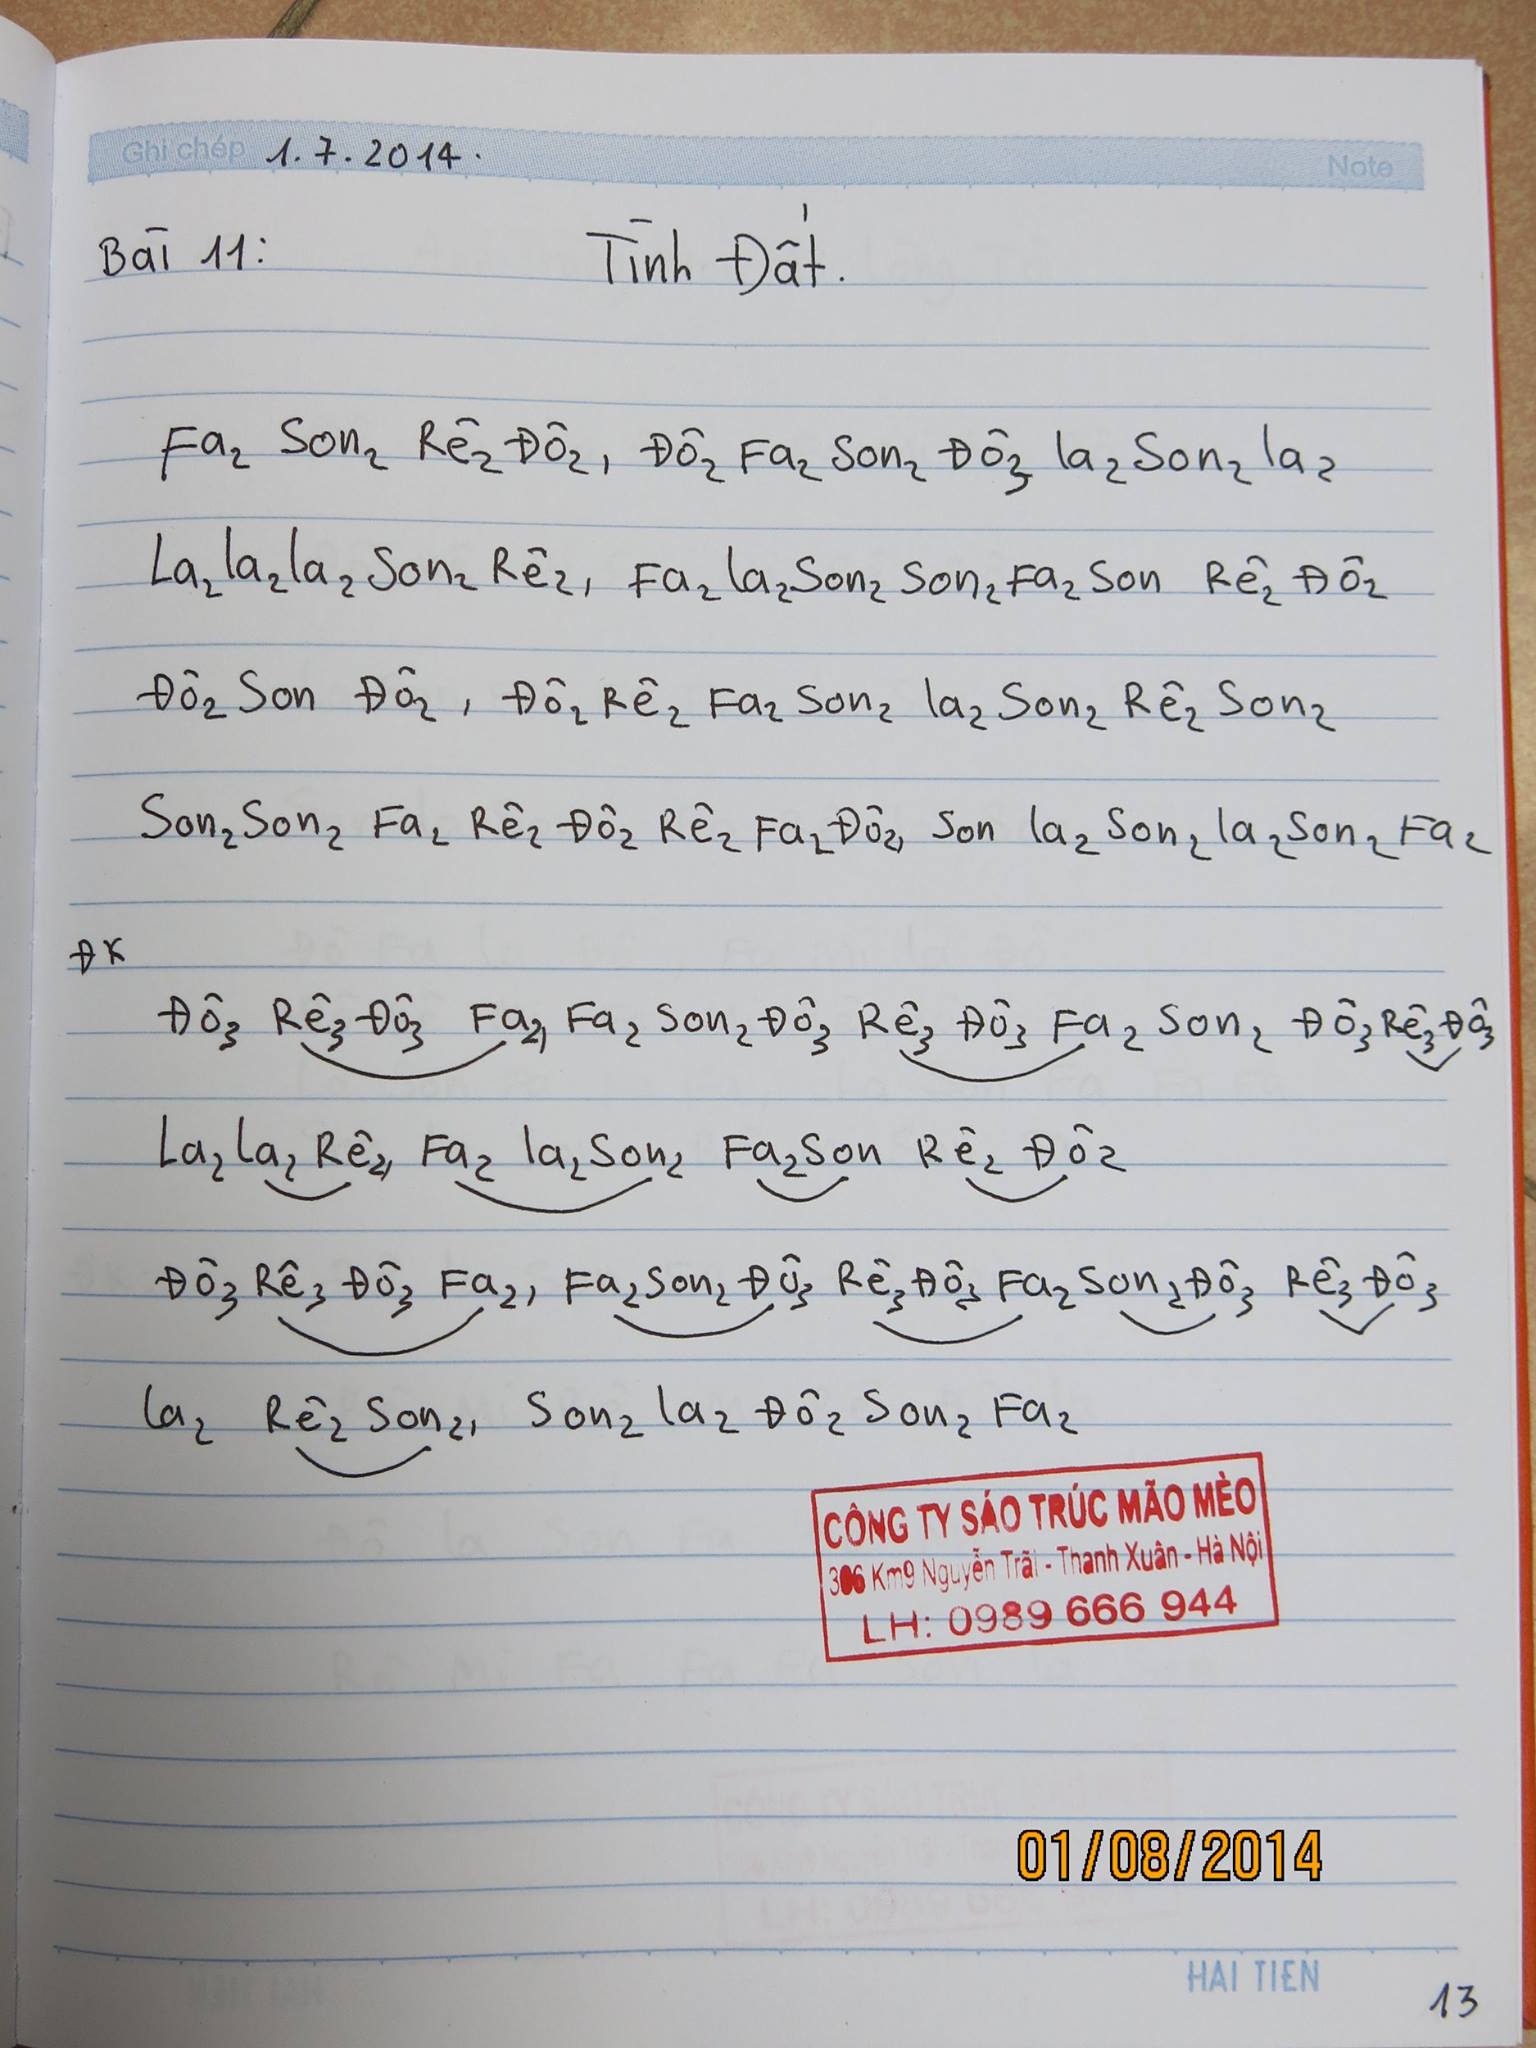 Ghi chép 1.7.2014. Note
Bài 11: Tình Đất.
Fa₂ Son₂ Rê₂ Đô₂, Đô₂ Fa₂ Son₂ Đô₃ la₂ Son₂ la₂
La₂ la₂ la₂ Son₂ Rê₂, Fa₂ la₂ Son₂ Son₂ Fa₂ Son Rê₂ Đô₂
Đô₂ Son Đô₂, Đô₂ Rê₂ Fa₂ Son₂ la₂ Son₂ Rê₂ Son₂
Son₂ Son₂ Fa₂ Rê₂ Đô₂ Rê₂ Fa₂ Đô₂, Son la₂ Son₂ la₂ Son₂ Fa₂
ĐK
Đô₃ Rê₃ Đô₃ Fa₂, Fa₂ Son₂ Đô₃ Rê₃ Đô₃ Fa₂ Son₂ Đô₃ Rê₃ Đô₃
La₂ la₂ Rê₂, Fa₂ la₂ Son₂ Fa₂ Son Rê₂ Đô₂
Đô₃ Rê₃ Đô₃ Fa₂, Fa₂ Son₂ Đô₃ Rê₃ Đô₃ Fa₂ Son₂ Đô₃ Rê₃ Đô₃
la₂ Rê₂ Son₂, Son₂ la₂ Đô₂ Son₂ Fa₂
CÔNG TY SÁO TRÚC MÃO MÈO
306 Km9 Nguyễn Trãi - Thanh Xuân - Hà Nội
LH: 0989 666 944
01/08/2014
HAI TIEN
13